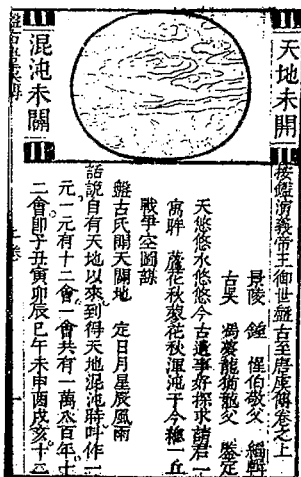 天地未開
混沌未闢
按鑑演義帝王御世盤古至唐虞傳卷之上
景陵 鍾 惺伯敬父 編輯
古吳 馮夢龍猶龍父 鑒定
天悠悠水悠悠今古遺事好探求請君一
寓眸 落花秋蓼花秋渾沌于今總一丘
戰爭空圖謀
盤古氏開天闢地 定日月星辰風雨
話說自有天地以來到得天地混沌時叫作一
元一元有十二會一會共有一萬八百年十
二會即子丑寅卯辰巳午未申酉戌亥十二